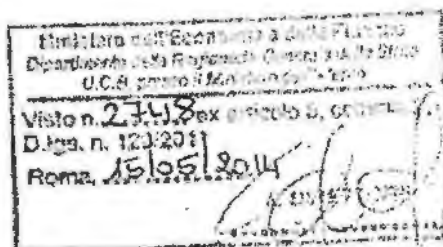 Ministero dell'Economia e delle Finanze
Dipartimento della Ragioneria Generale dello Stato
U.C.B. presso il Ministero
Visto n. 2748 ex articolo 5, comma
D.lgs. n. 123/2011
Roma, 15/05/2014